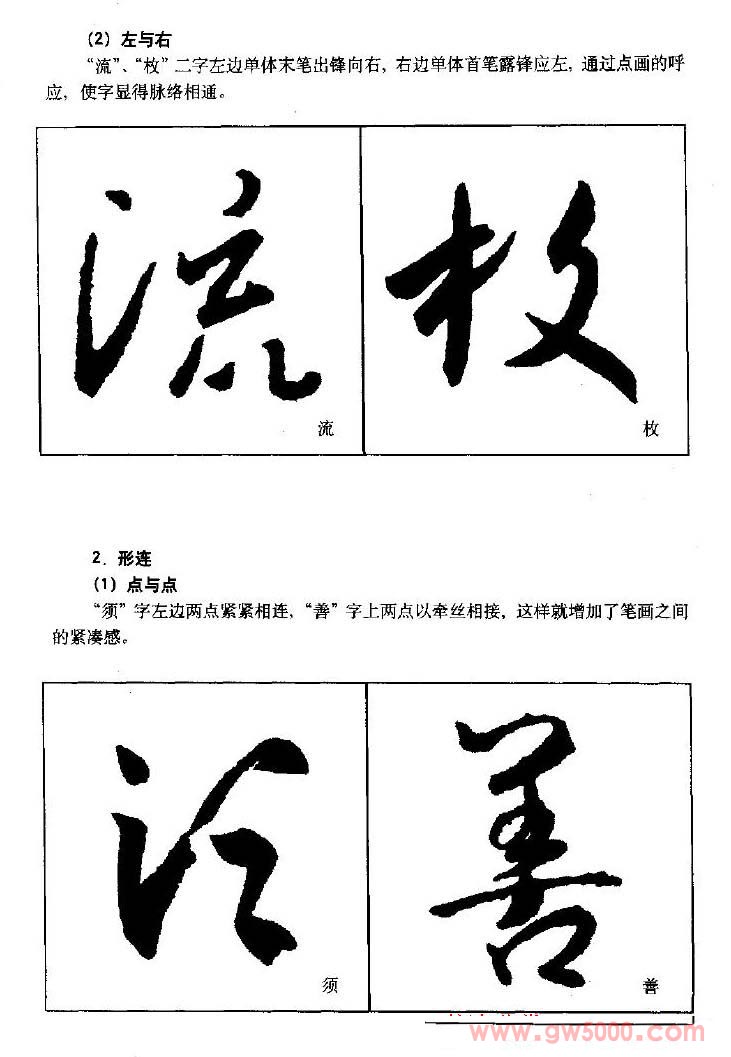 (2) 左与右
“流”、“枚”二字左边单体末笔出锋向右，右边单体首笔露锋应左，通过点画的呼
应，使字显得脉络相通。
流 枚
流
枚
2. 形连
(1) 点与点
“须”字左边两点紧紧相连，“善”字上两点以牵丝相接，这样就增加了笔画之间
的紧凑感。
须 善
须
善
www.gw5000.com